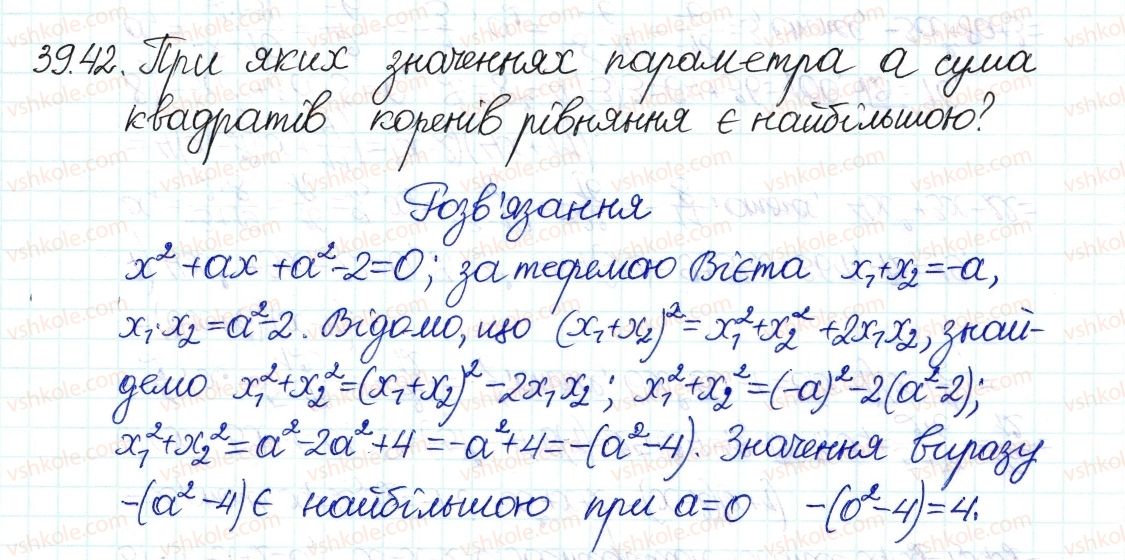 39.42. При яких значеннях параметра a сума
квадратів коренів рівняння є найбільшою?
Розв'язання
x² + ax + a² - 2 = 0; за теоремою Вієта x₁ + x₂ = -a,
x₁·x₂ = a² - 2. Відомо, що (x₁ + x₂)² = x₁² + x₂² + 2x₁x₂, знай-
демо x₁² + x₂² = (x₁ + x₂)² - 2x₁x₂; x₁² + x₂² = (-a)² - 2(a² - 2);
x₁² + x₂² = a² - 2a² + 4 = -a² + 4 = -(a² - 4). Значення виразу
-(a² - 4) є найбільшою при a = 0 -(0² - 4) = 4.